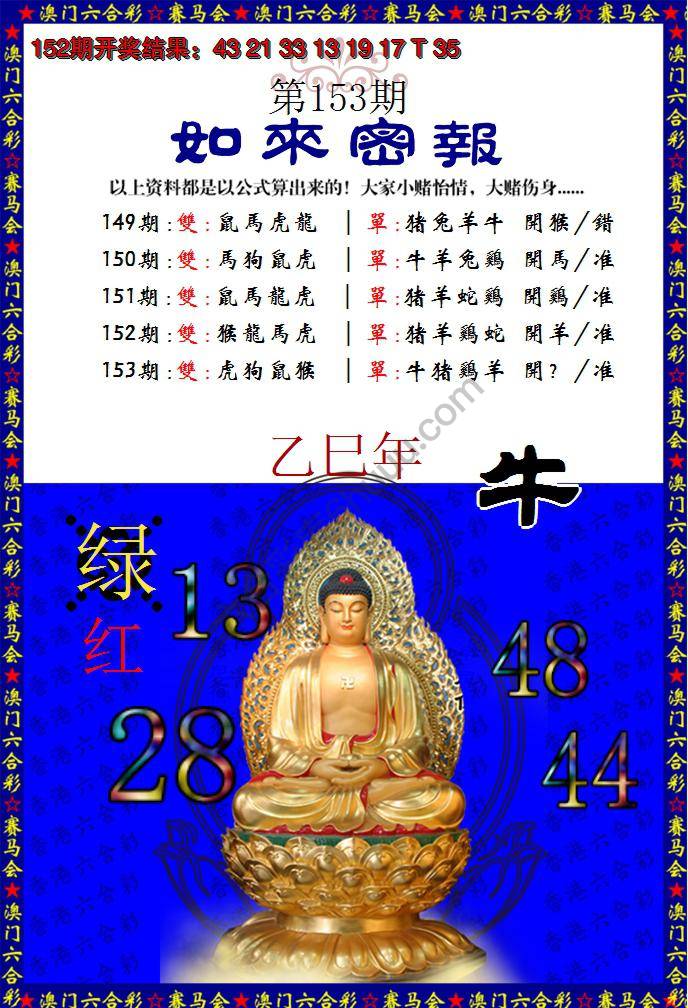 ★澳门六合彩☆赛马会★澳门六合彩☆赛马会★澳门六合彩☆赛马会★
152期开奖结果：43 21 33 13 19 17 T 35
第153期
如來密報
以上资料都是以公式算出来的！大家小赌怡情，大赌伤身......
149期:雙:鼠馬虎龍 | 單:猪兔羊牛 開猴/錯
150期:雙:馬狗鼠虎 | 單:牛羊兔鷄 開馬/准
151期:雙:鼠馬龍虎 | 單:猪羊蛇鷄 開鷄/准
152期:雙:猴龍馬虎 | 單:猪羊鷄蛇 開羊/准
153期:雙:虎狗鼠猴 | 單:牛猪鷄羊 開？/准
乙巳年
牛
绿
红
13
48
28
44
卍
香港六合彩
★澳门六合彩☆赛马会★澳门六合彩☆赛马会★澳门六合彩☆赛马会★